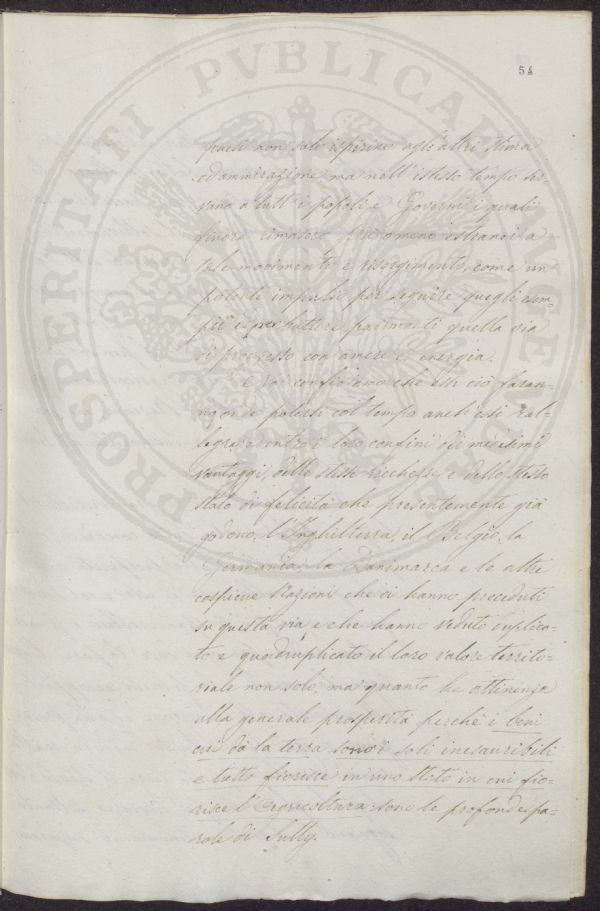 54
paesi non solo ispirino agl'altri stima
ed ammirazione, ma nell'istesso tempo ser-
vano a tutt'i popoli e Governi i quali
finora rimasero più o meno estranei a
tale movimento e risorgimento, come un
potente impulso per seguire quegli esem-
pii e per battere parimenti quella via
di progresso con amore ed energia.
E noi confidiamo che essi ciò faran-
no onde potersi col tempo anch'essi ral-
legrare entro i loro confini dei medesimi
vantaggi, delle stesse ricchezze e dello stesso
stato di felicità che presentemente già
godono, l'Inghilterra, il Belgio, la
Germania, la Danimarca e le altre
cospicue Nazioni che ci hanno preceduti
su questa via e che hanno veduto duplica-
to e quadruplicato il loro valore territo-
riale non solo, ma quanto ha attinenza
alla generale prosperità perchè i beni
cui dà la terra sono i soli inesauribili
e tutto fiorisce in uno Stato in cui fio-
risce l'agricoltura sono le profonde pa-
role di Sully.
PROSPERITATI PVBLICAE AVGENDAE